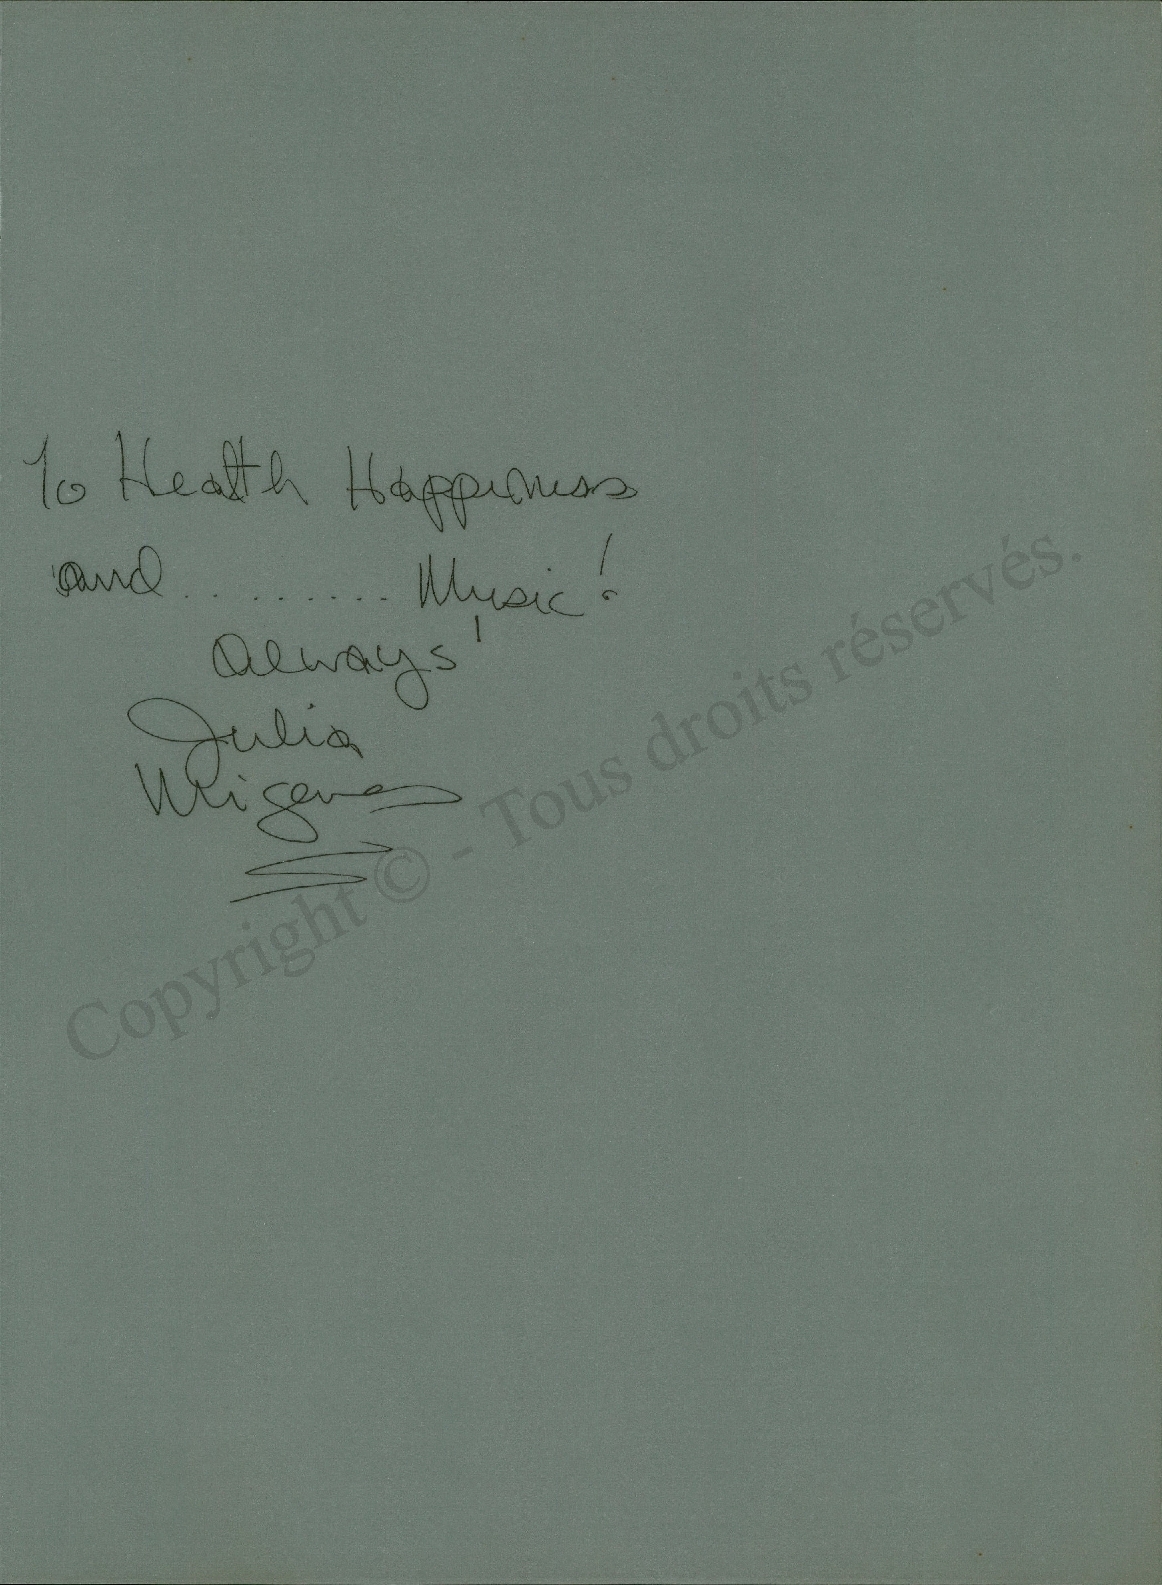 To Health Happiness
and ......... Music!
always'
Julia
Migenes
Copyright © - Tous droits réservés.